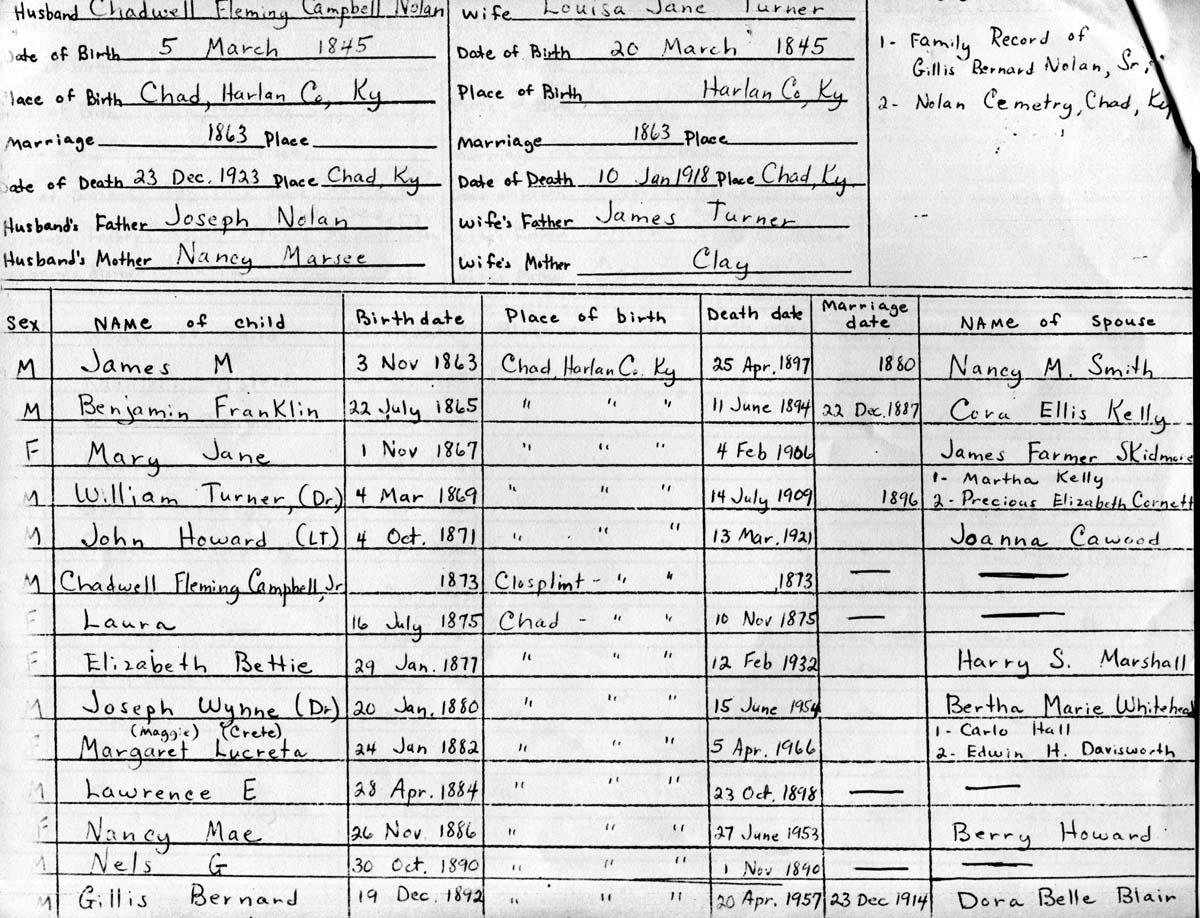 Husband Chadwell Fleming Campbell Nolan
Date of Birth 5 March 1845
lace of Birth Chad, Harlan Co, Ky
Marriage 1863 Place
Date of Death 23 Dec. 1923 Place Chad, Ky
Husband's Father Joseph Nolan
Husband's Mother Nancy Marsee
Wife Louisa Jane Turner
Date of Birth 20 March 1845
Place of Birth Harlan Co, Ky
Marriage 1863 Place
Date of Death 10 Jan 1918 Place Chad, Ky.
Wife's Father James Turner
Wife's Mother Clay
1- Family Record of
Gillis Bernard Nolan, Sr.
2- Nolan Cemetry, Chad, Ky
Sex NAME of child Birthdate Place of birth Death date Marriage date NAME of spouse
M James M 3 Nov 1863 Chad, Harlan Co, Ky 25 Apr. 1897 1880 Nancy M. Smith
M Benjamin Franklin 22 July 1865 " " " 11 June 1894 22 Dec. 1887 Cora Ellis Kelly
F Mary Jane 1 Nov 1867 " " " 4 Feb 1906 James Farmer Skidmore
1- Martha Kelly
M William Turner, (Dr.) 4 Mar 1869 " " " 14 July 1909 1896 2- Precious Elizabeth Cornett
M John Howard (LT) 4 Oct. 1871 " " " 13 Mar. 1921 Joanna Cawood
M Chadwell Fleming Campbell, Jr 1873 Closplint - " " 1873 — —
F Laura 16 July 1875 Chad - " " 10 Nov 1875 — —
F Elizabeth Bettie 29 Jan. 1877 " " " 12 Feb 1932 Harry S. Marshall
M Joseph Wynne (Dr) 20 Jan. 1880 " " " 15 June 1954 Bertha Marie Whitehead
(Maggie) (Crete) 1- Carlo Hall
F Margaret Lucreta 24 Jan 1882 " " " 5 Apr. 1966 2- Edwin H. Davisworth
M Lawrence E 28 Apr. 1884 " " " 23 Oct. 1898 — —
F Nancy Mae 26 Nov. 1886 " " " 27 June 1953 Berry Howard
M Nels G 30 Oct. 1890 " " " 1 Nov 1890 — —
M Gillis Bernard 19 Dec. 1892 " " " 20 Apr. 1957 23 Dec 1914 Dora Belle Blair